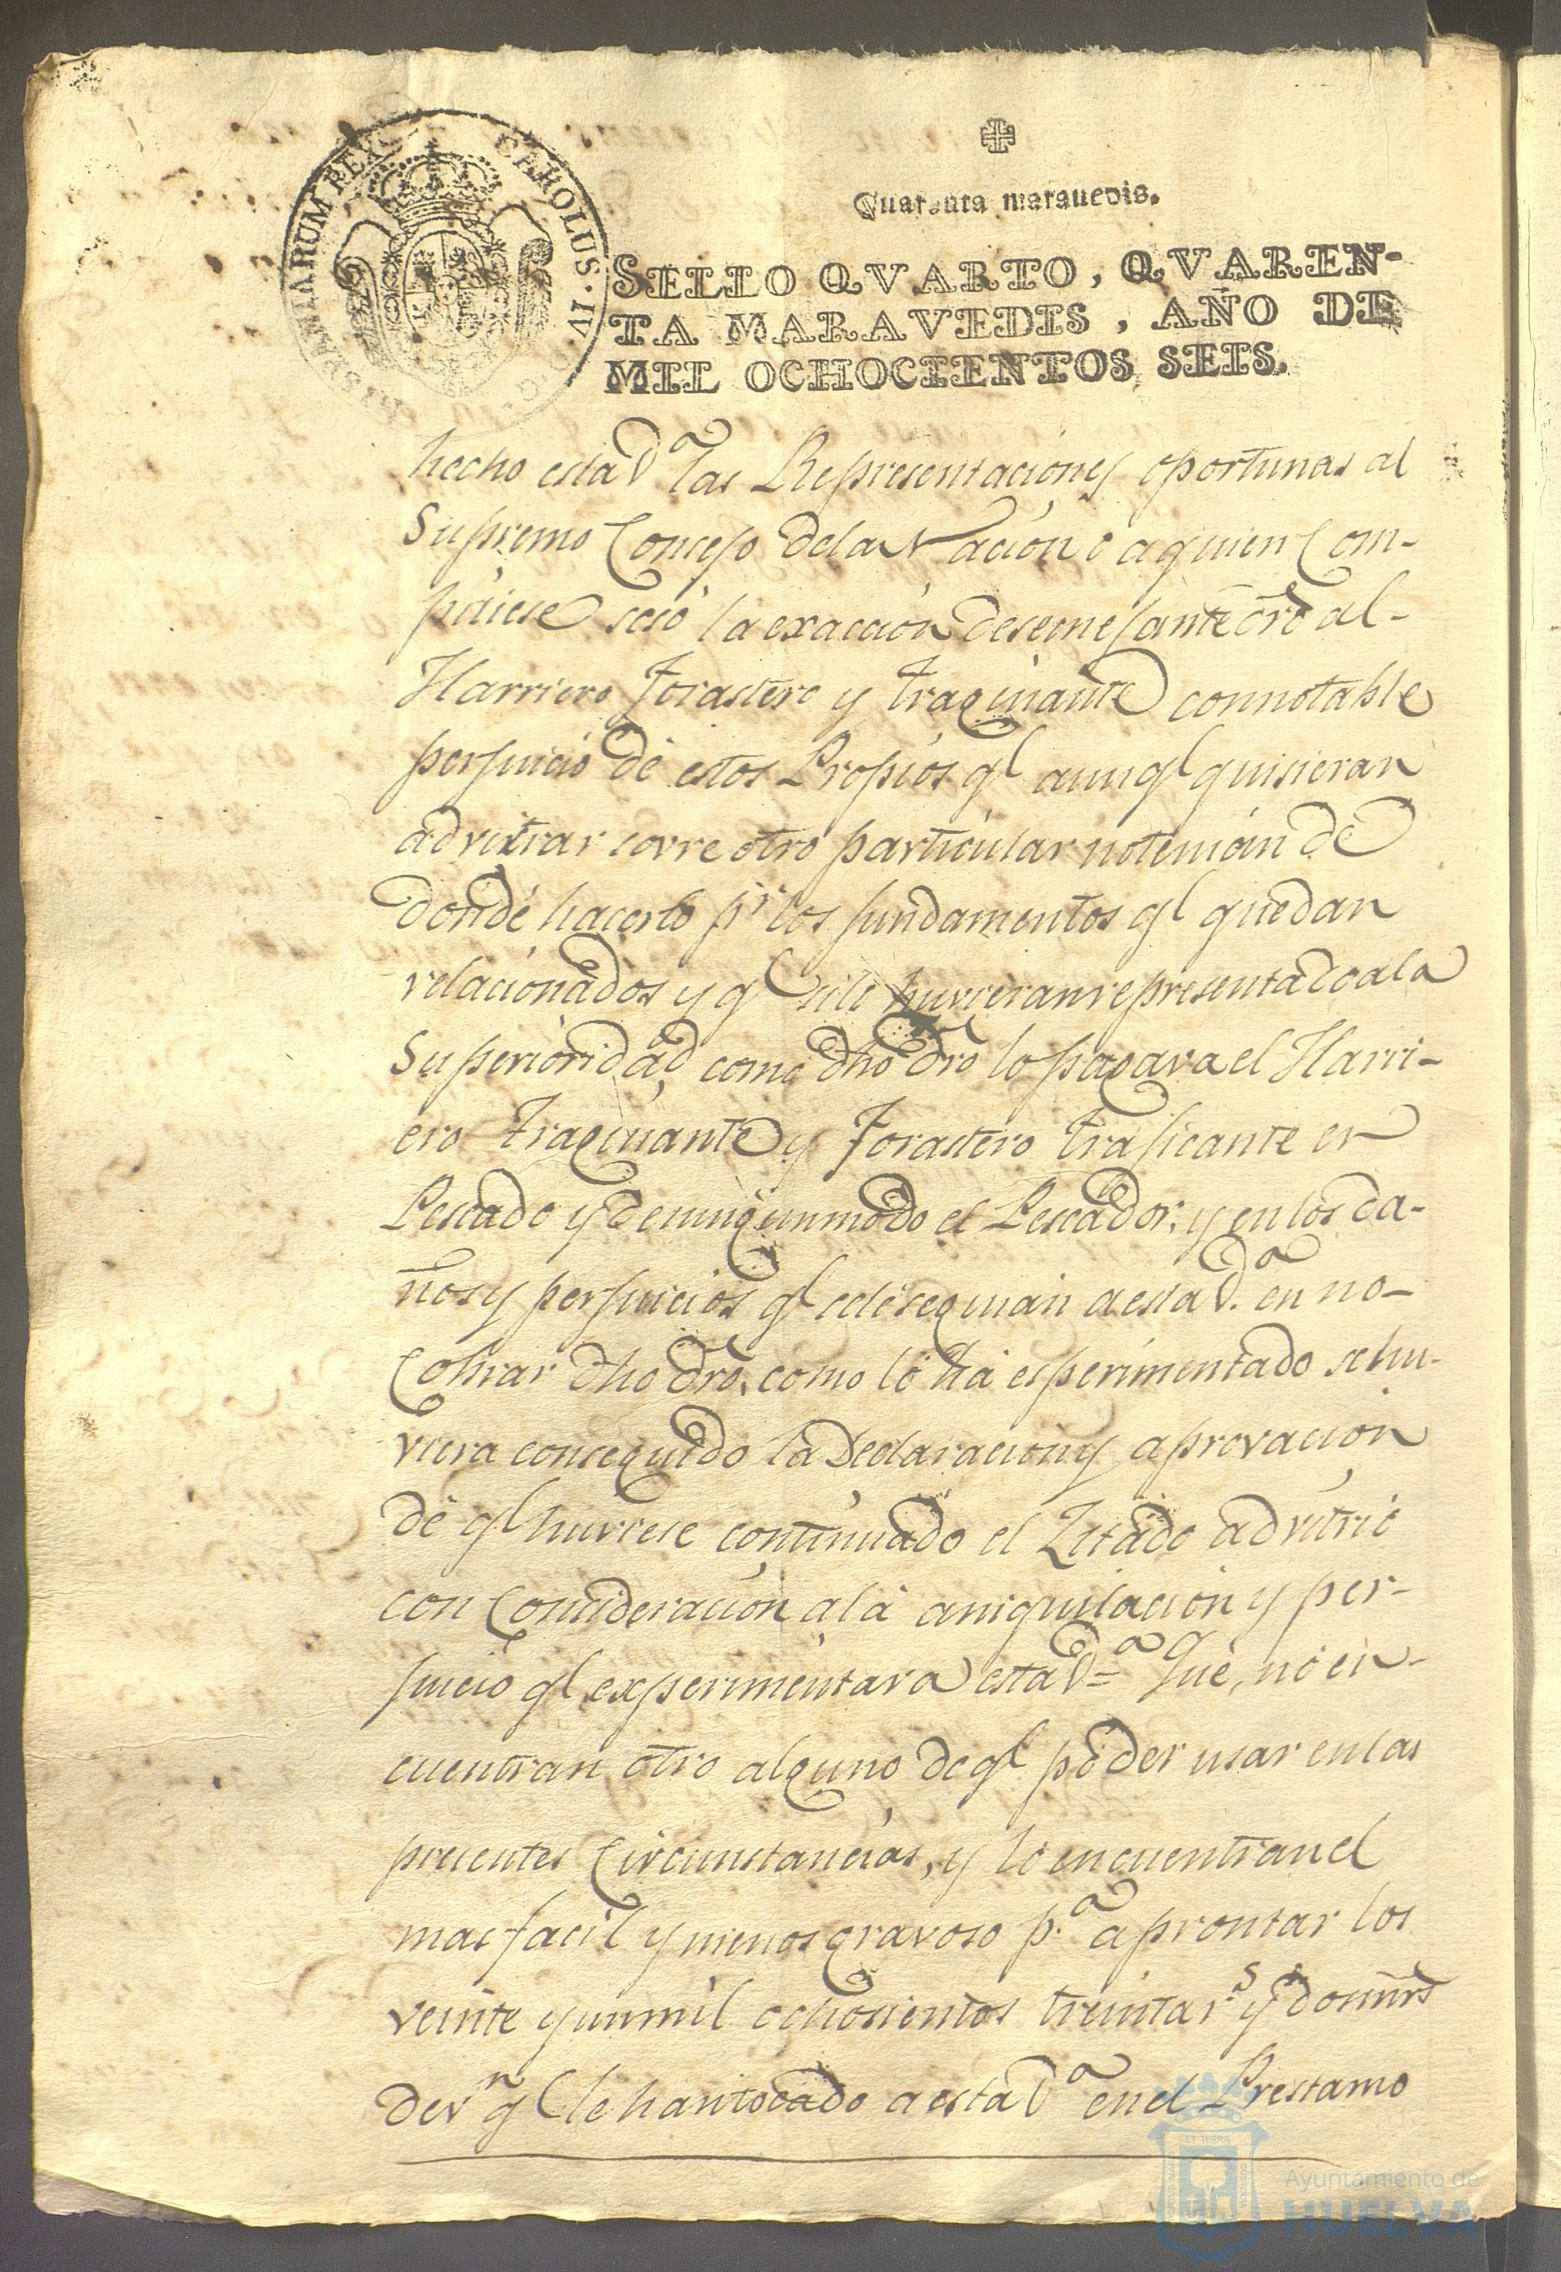 HISPANIARUM REX
CAROLUS · IV · D · G ·
Quarenta marauedis.
SELLO QVARTO, QVAREN-
TA MARAVEDIS, AÑO DE
MIL OCHOCIENTOS SEIS.
hecho esta Vª las Representaciones oportunas al
Supremo Concejo dela Nacion o aquien Com-
petiese seso la exaccion desemejante dro al-
Harriero forastero y traginante connotable
perjuicio de estos Propios ql aunql quisieran
advitrar sovre otro particular notenian de
donde hacerlo pr los fundamentos ql quedan
relacionados y ql silo huvieran representado ala
Superioridad, como dho dro lo pagava el Harri-
ero traginante y forastero traficante en
Pescado y de ningun modo el Pescador, y en los da-
ños y perjuicios ql sele seguian a esta Vª en no-
Cobrar dho dro, como lo ha esperimentado se hu-
viera conseguido la Declaracion y aprovacion
de ql huviese continuado el Zitado advitrio
con Consideracion a la aniquilacion y per-
juicio ql experimentava esta Vª = Que, no en-
cuentran otro alguno de ql poder usar en las
presentes Circunstancias, y lo encuentran el
mas facil y menos gravoso pª aprontar los
veinte y un mil ochosientos treinta rs y dos mrs
de vn ql le han tocado a esta Vª en el Prestamo
ET TERRÆ
Ayuntamiento de
HUELVA